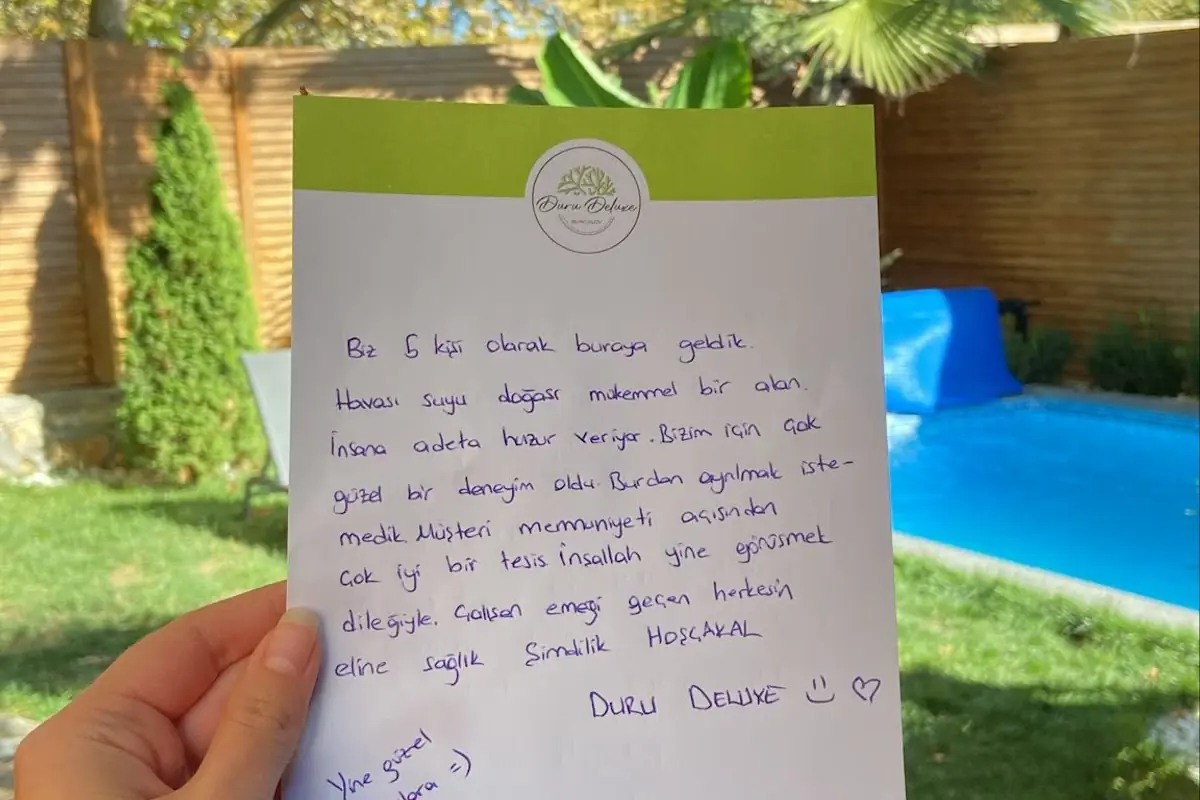 Duru Deluxe
Biz 5 kişi olarak buraya geldik.
Havası suyu doğası mükemmel bir alan.
İnsana adeta huzur veriyor. Bizim için çok
güzel bir deneyim oldu. Burdan ayrılmak iste-
medik. Müşteri memnuniyeti açısından
çok iyi bir tesis İnşallah yine görüşmek
dileğiyle. Çalışan emeği geçen herkesin
eline sağlık Şimdilik HOŞÇAKAL
DURU DELUXE
Yine güzel
lara =)